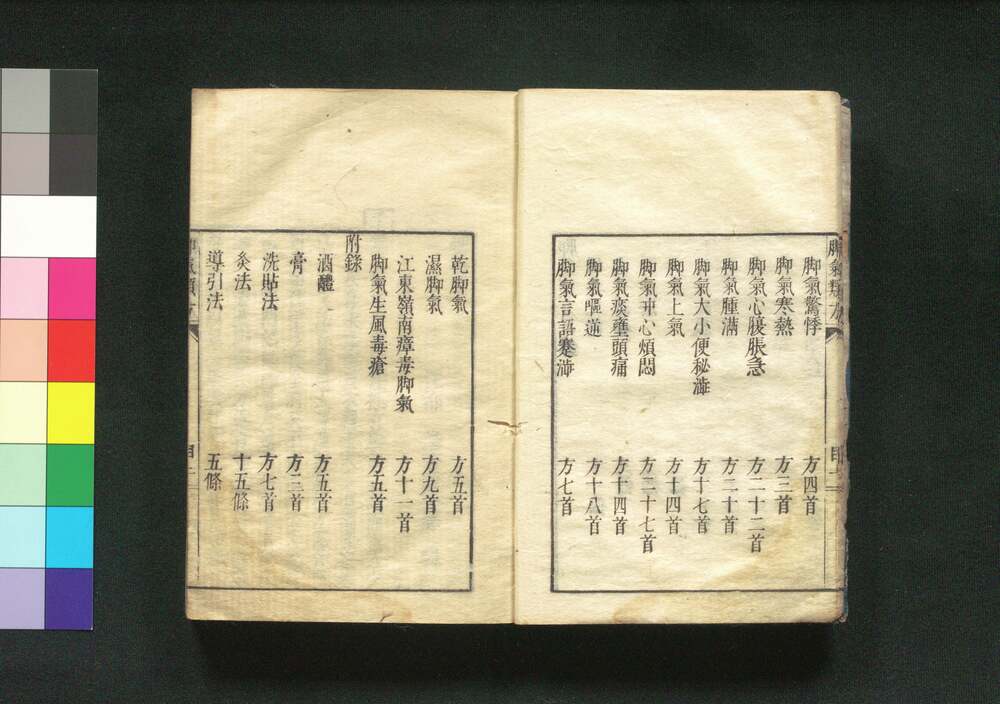 脚氣類方
脚氣驚悸 方四首
脚氣寒熱 方三首
脚氣心腹脹急 方二十二首
脚氣腫滿 方二十首
脚氣大小便秘澁 方十七首
脚氣上氣 方十四首
脚氣冲心煩悶 方二十七首
脚氣痰壅頭痛 方十四首
脚氣嘔逆 方十八首
脚氣言語蹇澁 方七首
乾脚氣 方五首
濕脚氣 方九首
江東嶺南瘴毒脚氣 方十一首
脚氣生風毒瘡 方五首
附錄
酒醴 方五首
膏 方三首
洗貼法 方七首
灸法 十五條
導引法 五條